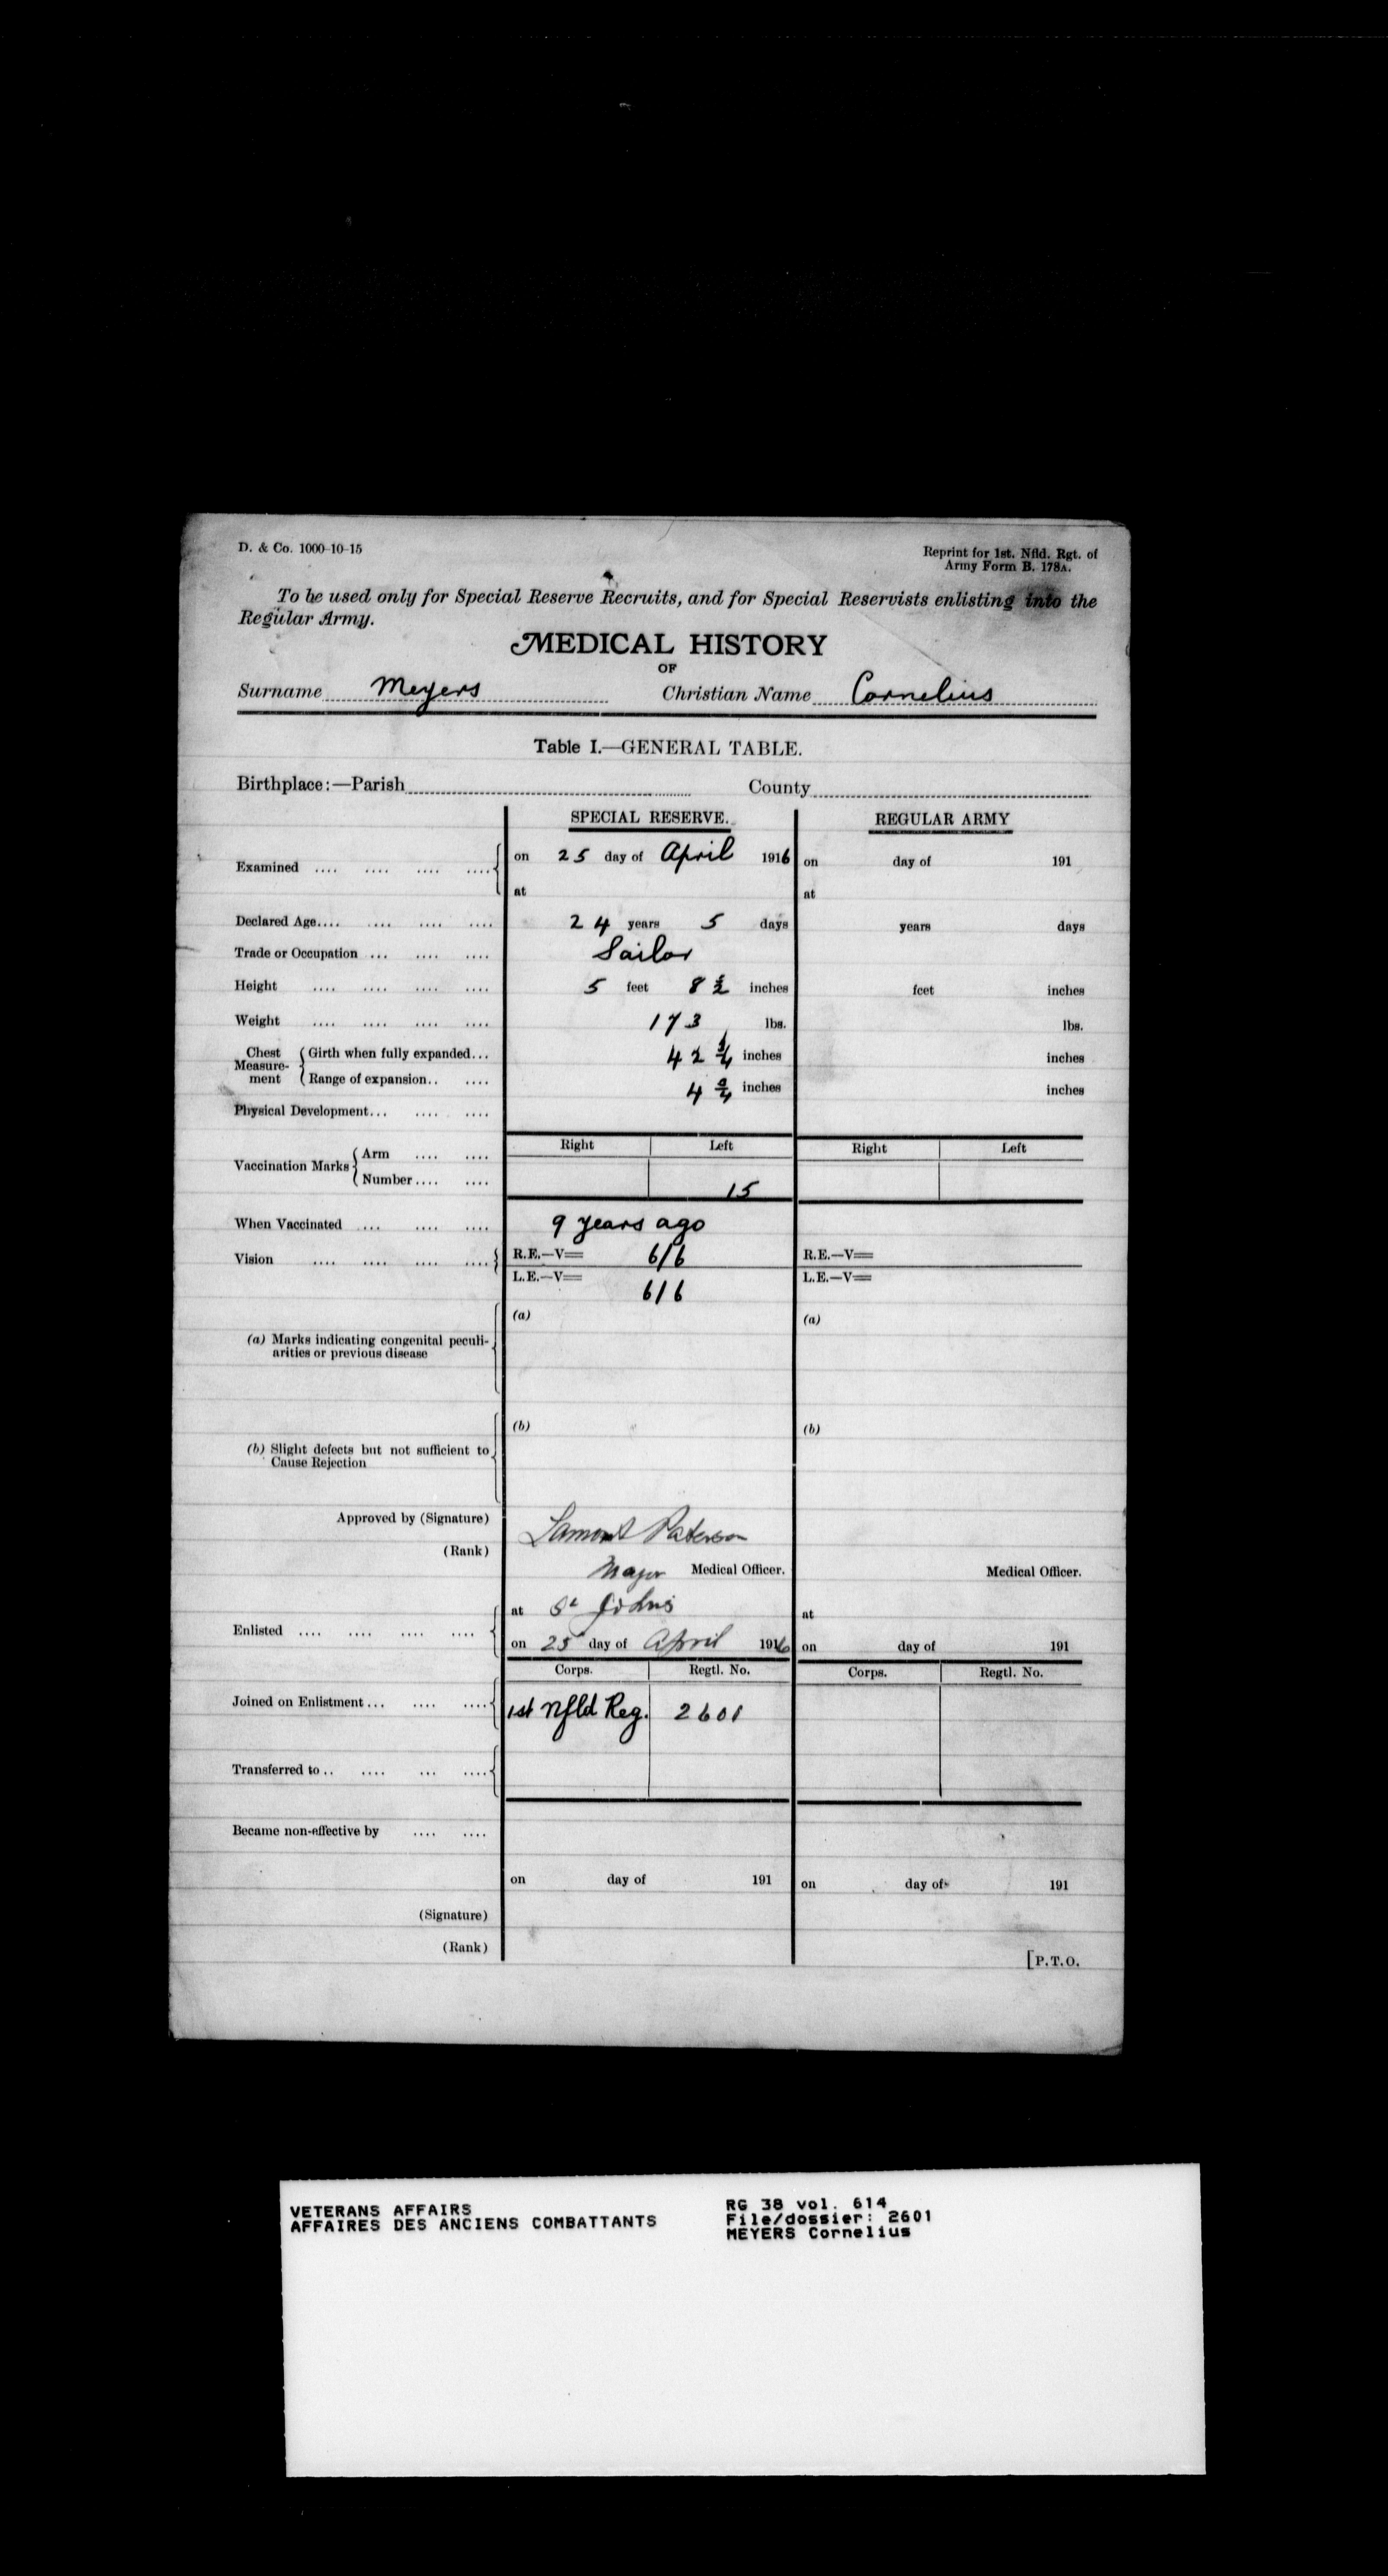 D. & Co. 1000-10-15
Reprint for 1st. Nfld. Rgt. of
Army Form B. 178A.
To be used only for Special Reserve Recruits, and for Special Reservists enlisting into the
Regular Army.
MEDICAL HISTORY
OF
Surname Meyers Christian Name Cornelius
Table I.—GENERAL TABLE.
Birthplace:—Parish County
SPECIAL RESERVE. REGULAR ARMY
Examined .... .... .... .... on 25 day of April 1916 on day of 191
at at
Declared Age.... .... .... .... 24 years 5 days years days
Trade or Occupation ... .... .... Sailor
Height .... .... .... .... 5 feet 8 ½ inches feet inches
Weight .... .... .... .... 173 lbs. lbs.
Chest Measurement Girth when fully expanded... 42 inches inches
Range of expansion.. .... 4 inches inches
Physical Development... .... ....
Right Left Right Left
Vaccination Marks Arm .... ....
Number.... .... 15
When Vaccinated ... .... .... 9 years ago
Vision .... .... .... .... R.E.—V= 6/6 R.E.—V=
L.E.—V= 6/6 L.E.—V=
(a) (a)
(a) Marks indicating congenital peculi-
arities or previous disease
(b) (b)
(b) Slight defects but not sufficient to
Cause Rejection
Approved by (Signature) Lamont Paterson
(Rank) Major Medical Officer. Medical Officer.
at St Johns at
Enlisted .... .... .... .... on 25 day of April 1916 on day of 191
Corps. Regtl. No. Corps. Regtl. No.
Joined on Enlistment... .... .... 1st Nfld Reg. 2601
Transferred to .. .... ... ....
Became non-effective by .... ....
on day of 191 on day of 191
(Signature)
(Rank)
[P.T.O.
VETERANS AFFAIRS RG 38 vol. 614
AFFAIRES DES ANCIENS COMBATTANTS File/dossier: 2601
MEYERS Cornelius